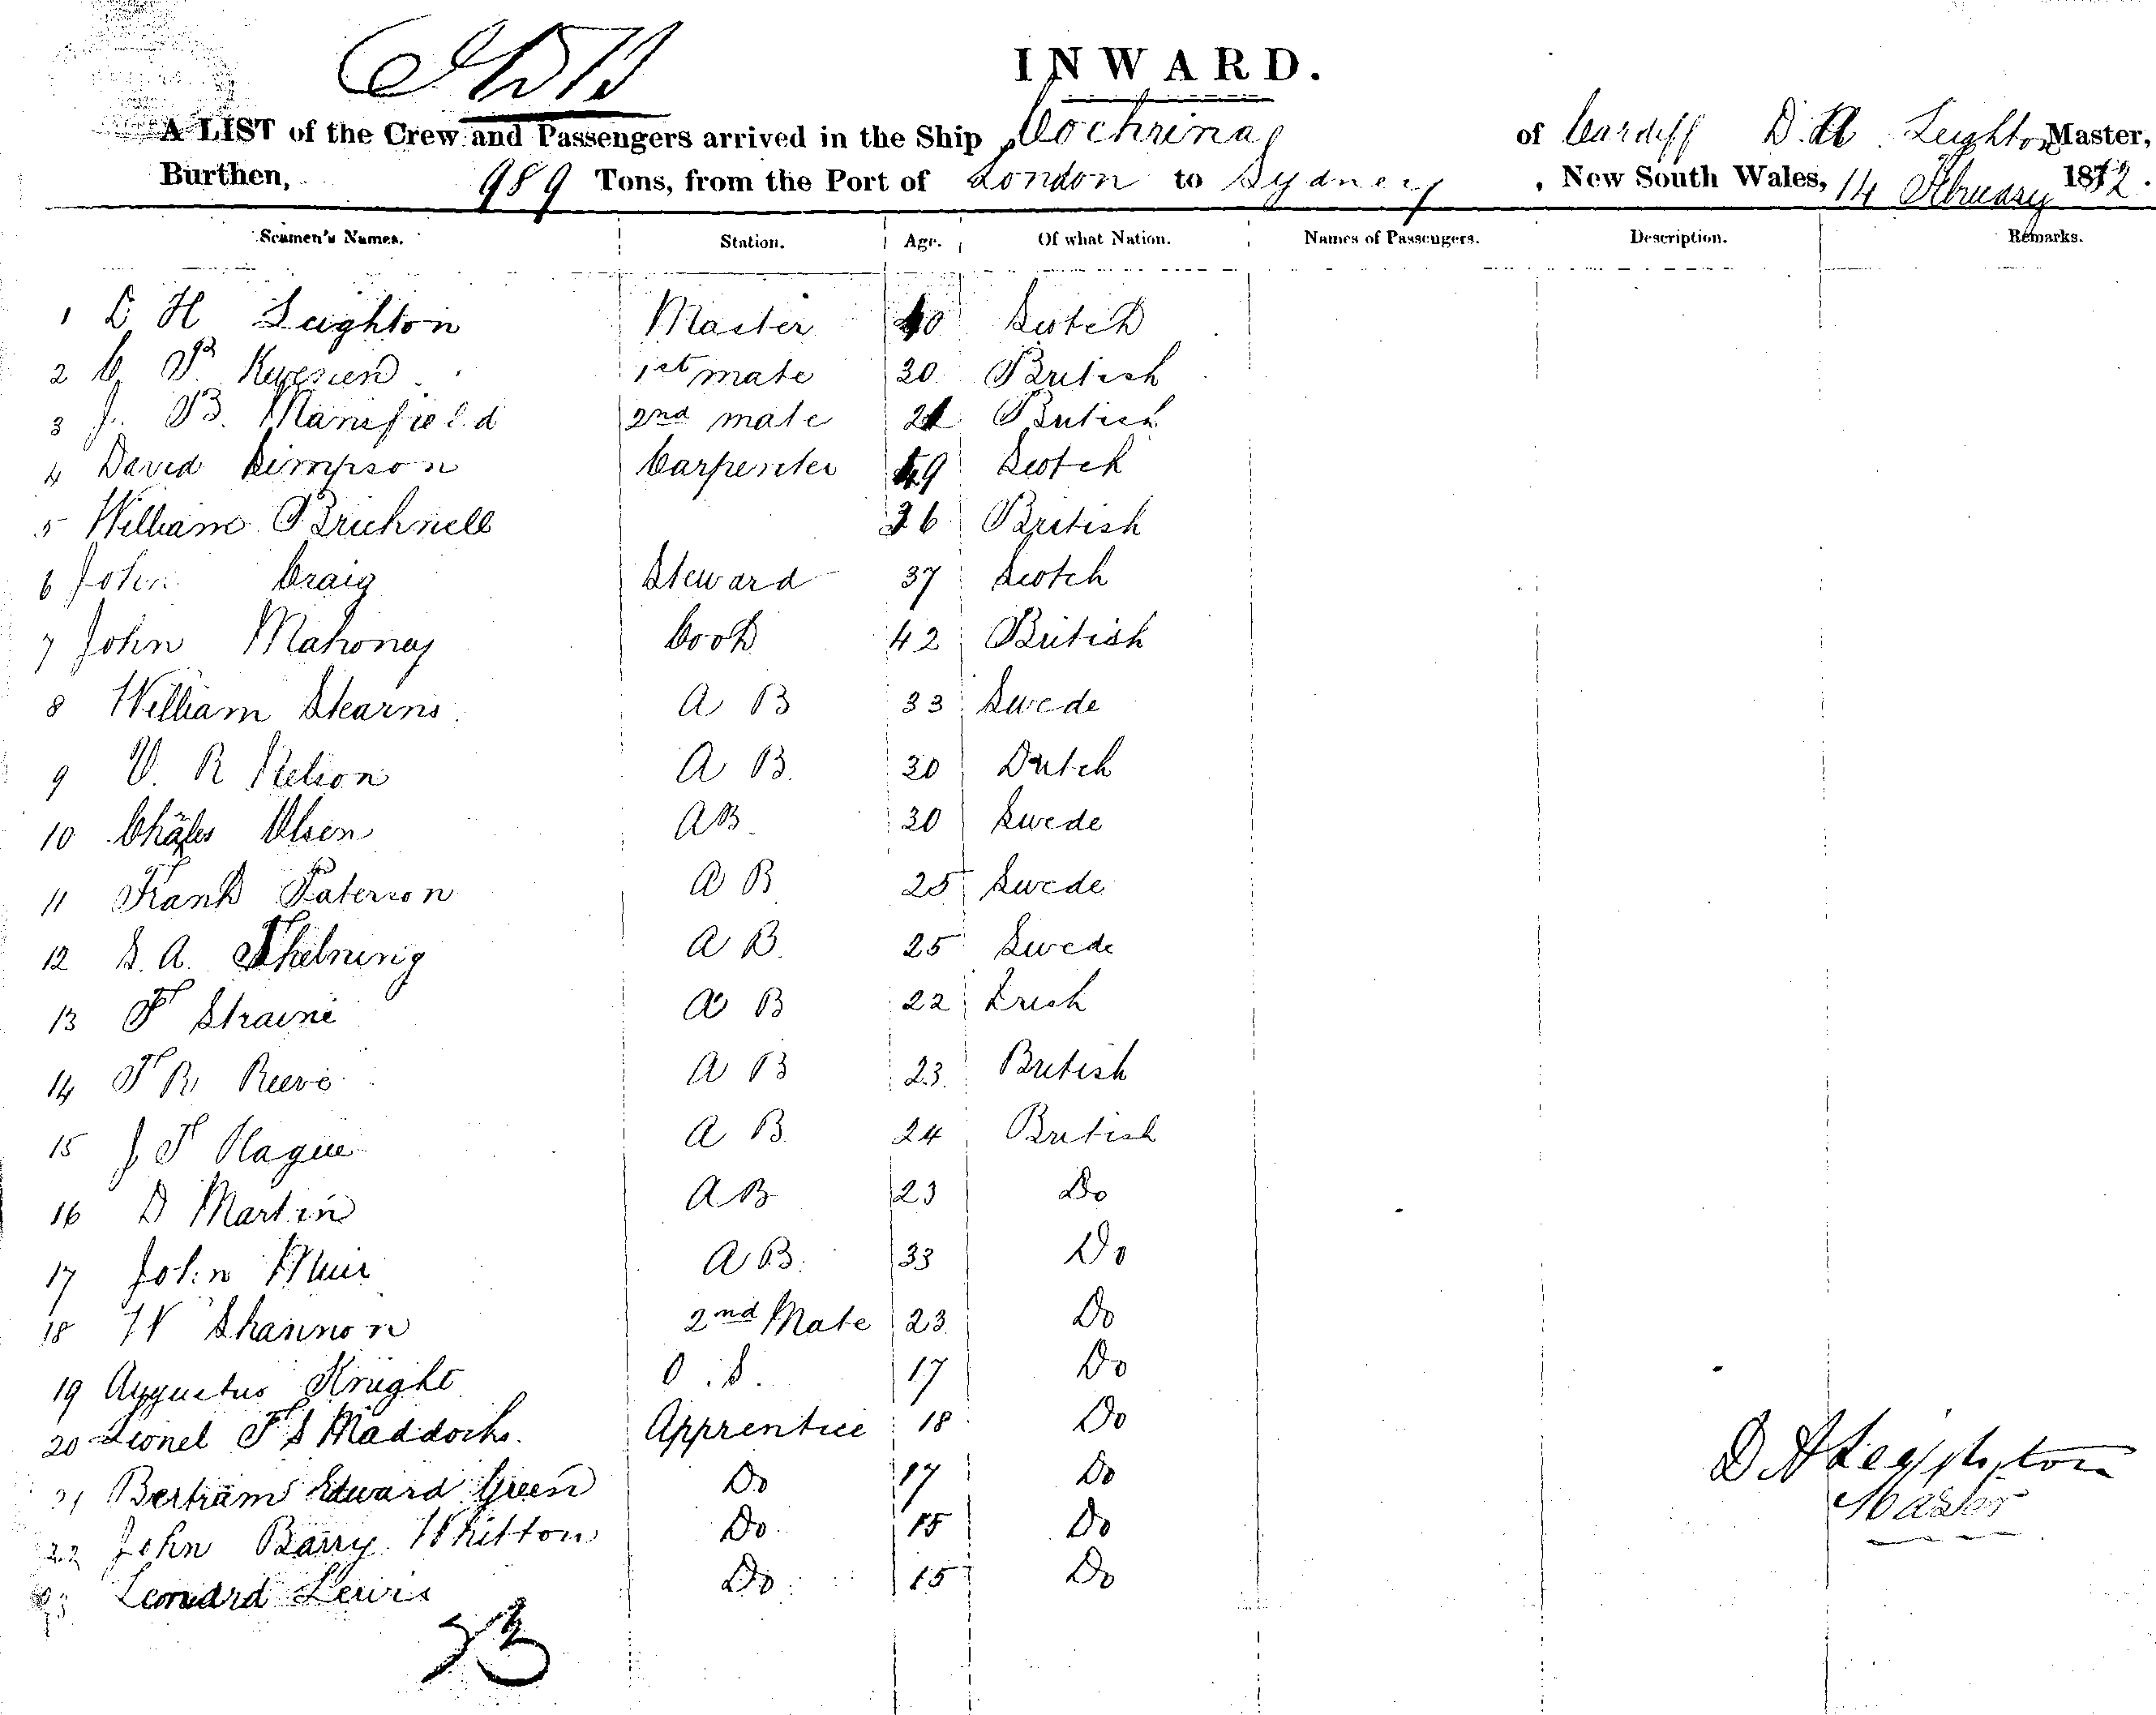 INWARD.
A LIST of the Crew and Passengers arrived in the Ship Cochrina of Cardiff D. H. Leighton Master,
Burthen, 989 Tons, from the Port of London to Sydney, New South Wales, 14 February 1872.
Seamen's Names. Station. Age. Of what Nation. Names of Passengers. Description. Remarks.
1 D H Leighton Master 40 Scotch
2 C P 1st mate 30 British
3 J. B. Mansfield 2nd mate 21 British
4 David Simpson Carpenter 49 Scotch
5 William Bricknell 36 British
6 John Craig Steward 37 Scotch
7 John Mahoney Cook 42 British
8 William Stearns A B 33 Swede
9 V. R Nelson A B. 30 Dutch
10 Charles Olsen AB. 30 Swede
11 Frank Paterson A B 25 Swede
12 S. A. A B. 25 Swede
13 F Straine A B 22 Irish
14 T R Reeve A B 23. British
15 J T Hague A B. 24 British
16 D Martin AB 23 Do
17 John Muir A B. 33 Do
18 W Shannon 2nd Mate 23 Do
19 Augustus Knight O. S. 17 Do
20 Lionel F S Maddocks. Apprentice 18 Do
21 Bertram Edward Green Do 17 Do
22 John Barry Whitton Do 15 Do
23 Leonard Lewis Do 15 Do
D H Leighton
Master
23